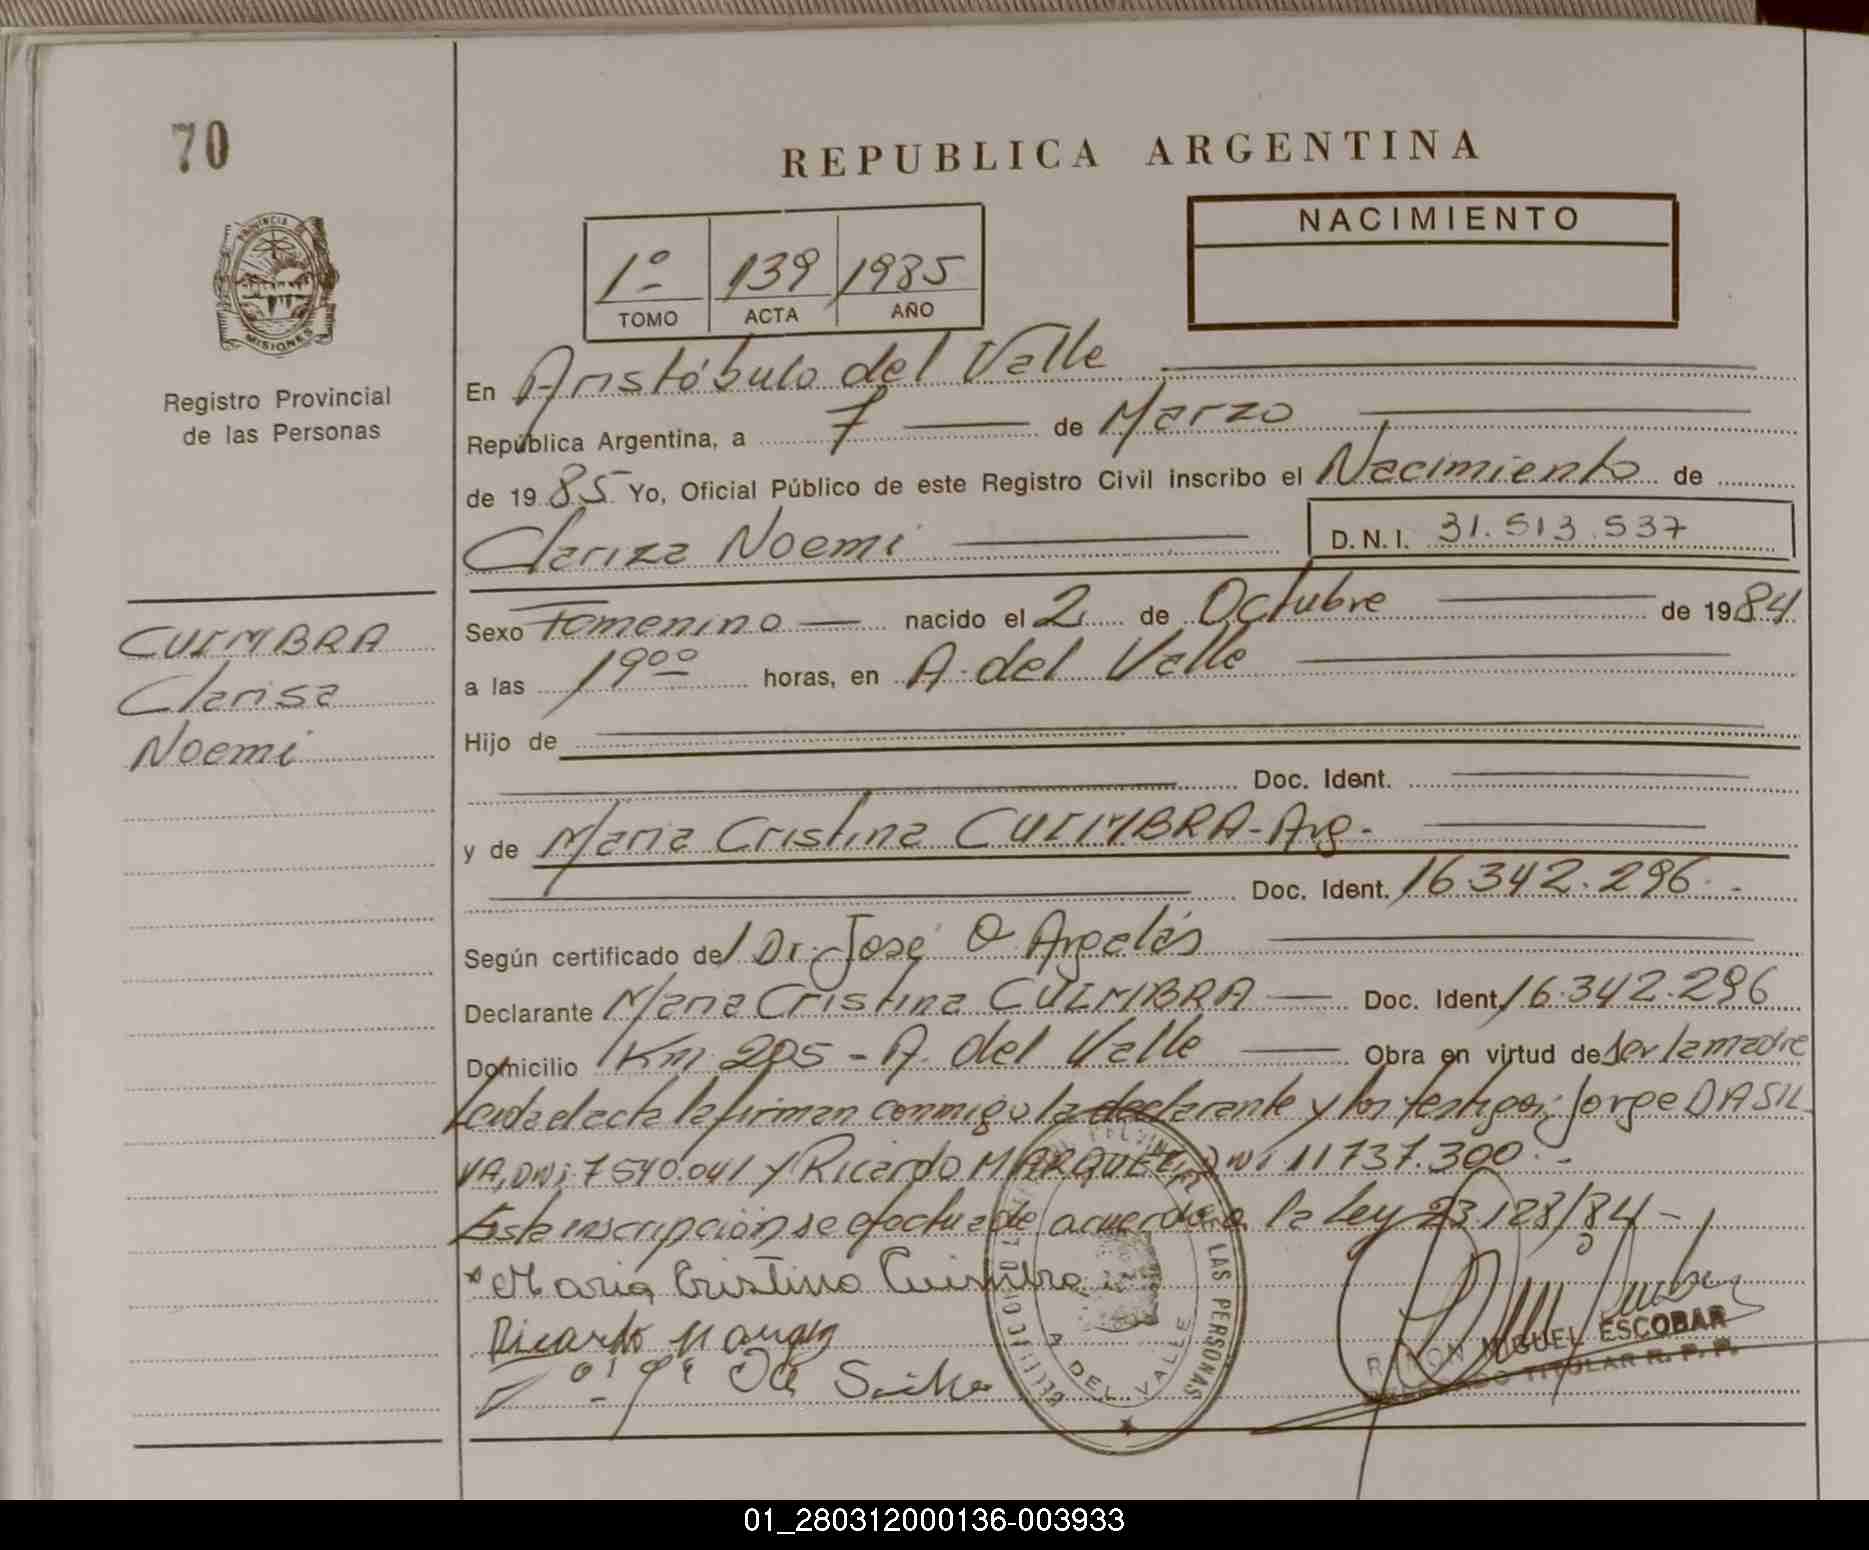 70
REPUBLICA ARGENTINA
PROVINCIA
MISIONES
Registro Provincial
de las Personas
1º 139 1985
TOMO ACTA AÑO
NACIMIENTO
En Aristóbulo del Valle
República Argentina, a 7 de Marzo
de 19 85 Yo, Oficial Público de este Registro Civil inscribo el Nacimiento de
Clariza Noemi D.N.I. 31.513.537
CUIMBRA
Clarisa
Noemi
Sexo Femenino nacido el 2 de Octubre de 19 84
a las 19 00 horas, en A. del Valle
Hijo de
Doc. Ident.
y de Maria Cristina CUIMBRA - Arg.-
Doc. Ident. 16.342.296.-
Según certificado del Dr. José O Argelás
Declarante Maria Cristina CUIMBRA Doc. Ident. 16.342.296
Domicilio Km. 205 - A. del Valle Obra en virtud de ser la madre
Leida el acta la firman conmigo la declarante y los testigos: Jorge DA SIL
VA, DNI 7540.041 y Ricardo MARQUEZ, DNI 11737.300.-
Esta inscripción se efectua de acuerdo a la Ley 23.128/84 -
Maria Cristina Cuimbra
Ricardo Marquez
Da Silva
DE LAS PERSONAS
A DEL VALLE
RAMON MIGUEL ESCOBAR
DELEGADO TITULAR R. P. P.
01_280312000136-003933